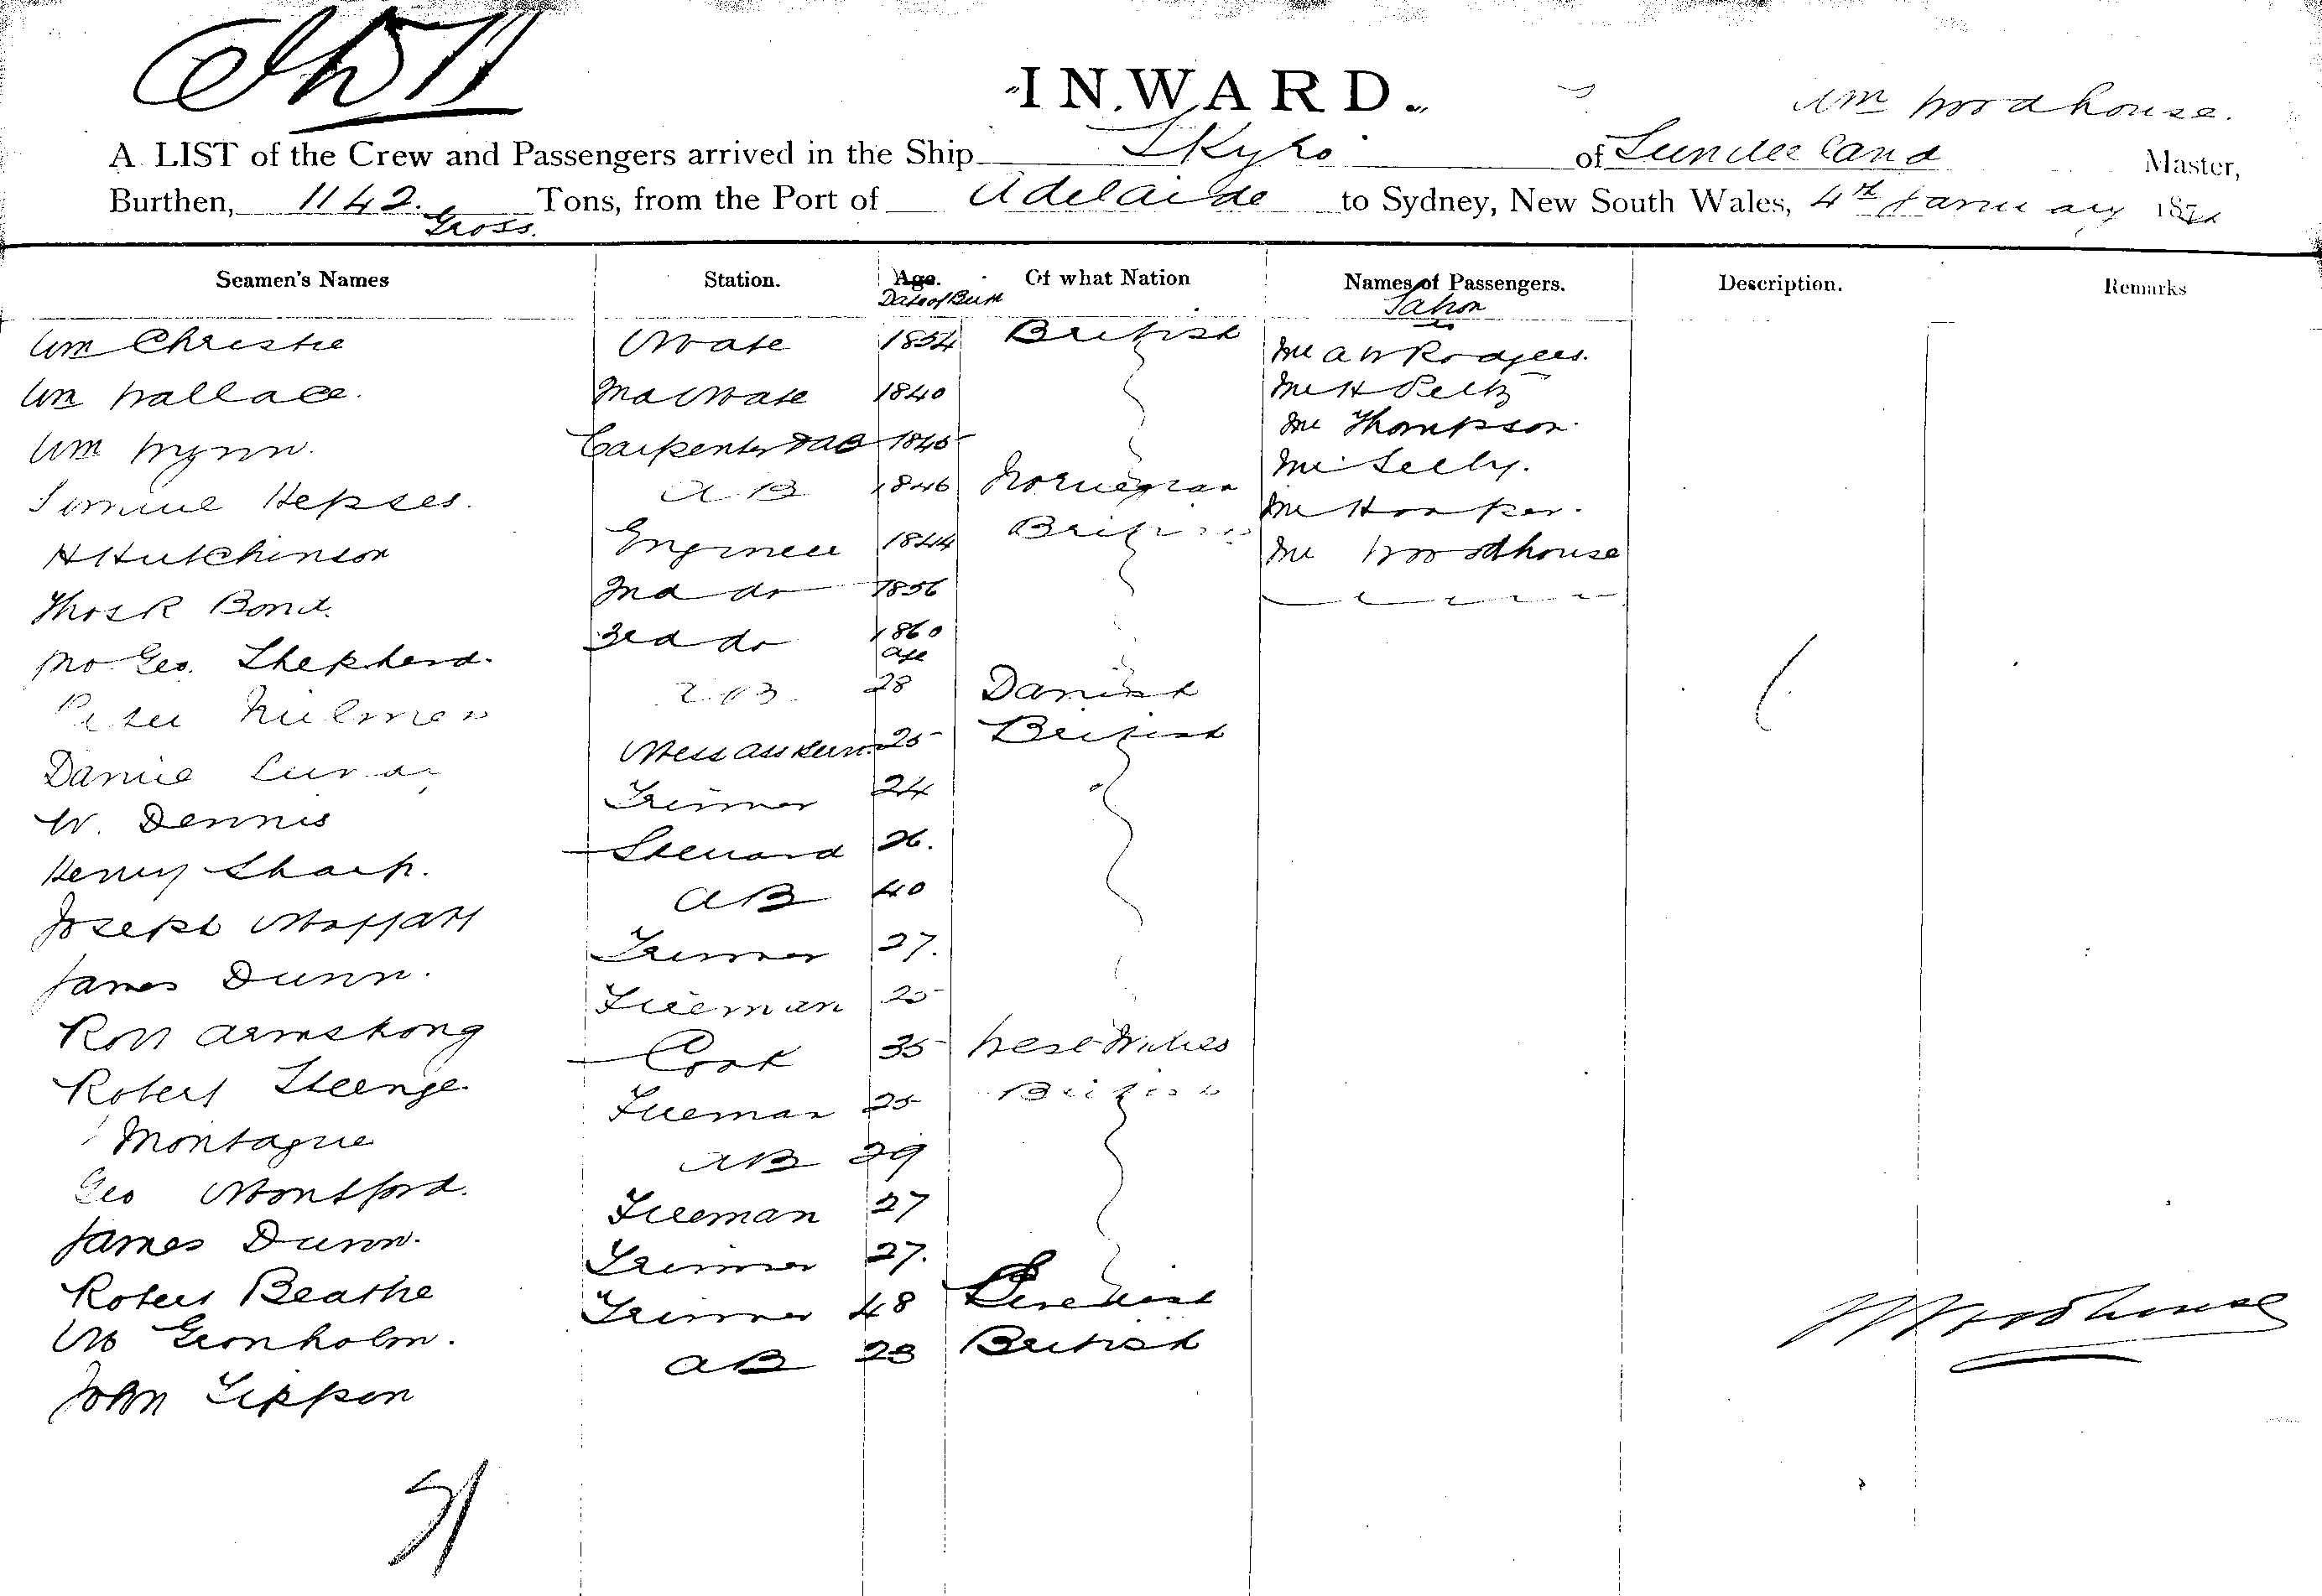 INWARD.
Wm Woodhouse.
A LIST of the Crew and Passengers arrived in the Ship Skyro of Sunderland Master,
Burthen, 1142 Gross. Tons, from the Port of Adelaide to Sydney, New South Wales, 4th January 188
Seamen's Names Station. Age. Of what Nation Names of Passengers. Description. Remarks
Date of Birth Saloon
Wm Christie Mate 1854 British Mr A W Rodgers.
Wm Wallace. 2nd Mate 1840 Mr H Peltz
Wm Wynn. Carpenter & AB 1845 Mr Thompson.
Hepses. AB 1846 Norwegian Mr Seely.
H Hutchinson Engineer 1844 British Mr Hooper.
Thos R Bond. 2nd do 1856 Mr Woodhouse
Jno Geo. Shepherd. 3rd do 1860
Age
Peter AB. 28 Danish
Daniel Mess 25 British
W. Dennis Trimmer 24
Henry Sharp. Steward 26.
Joseph Moffatt AB 40
James Dunn. Trimmer 27.
Robt Armstrong Fireman 25
Robert Cook 35 West Indies
Montague Fireman 25 British
Geo Montford. AB 29
James Dunn. Fireman 27
Robert Beathe Trimmer 27.
M Gronholm. Trimmer 48
John Tippon AB 23 British
W Woodhouse